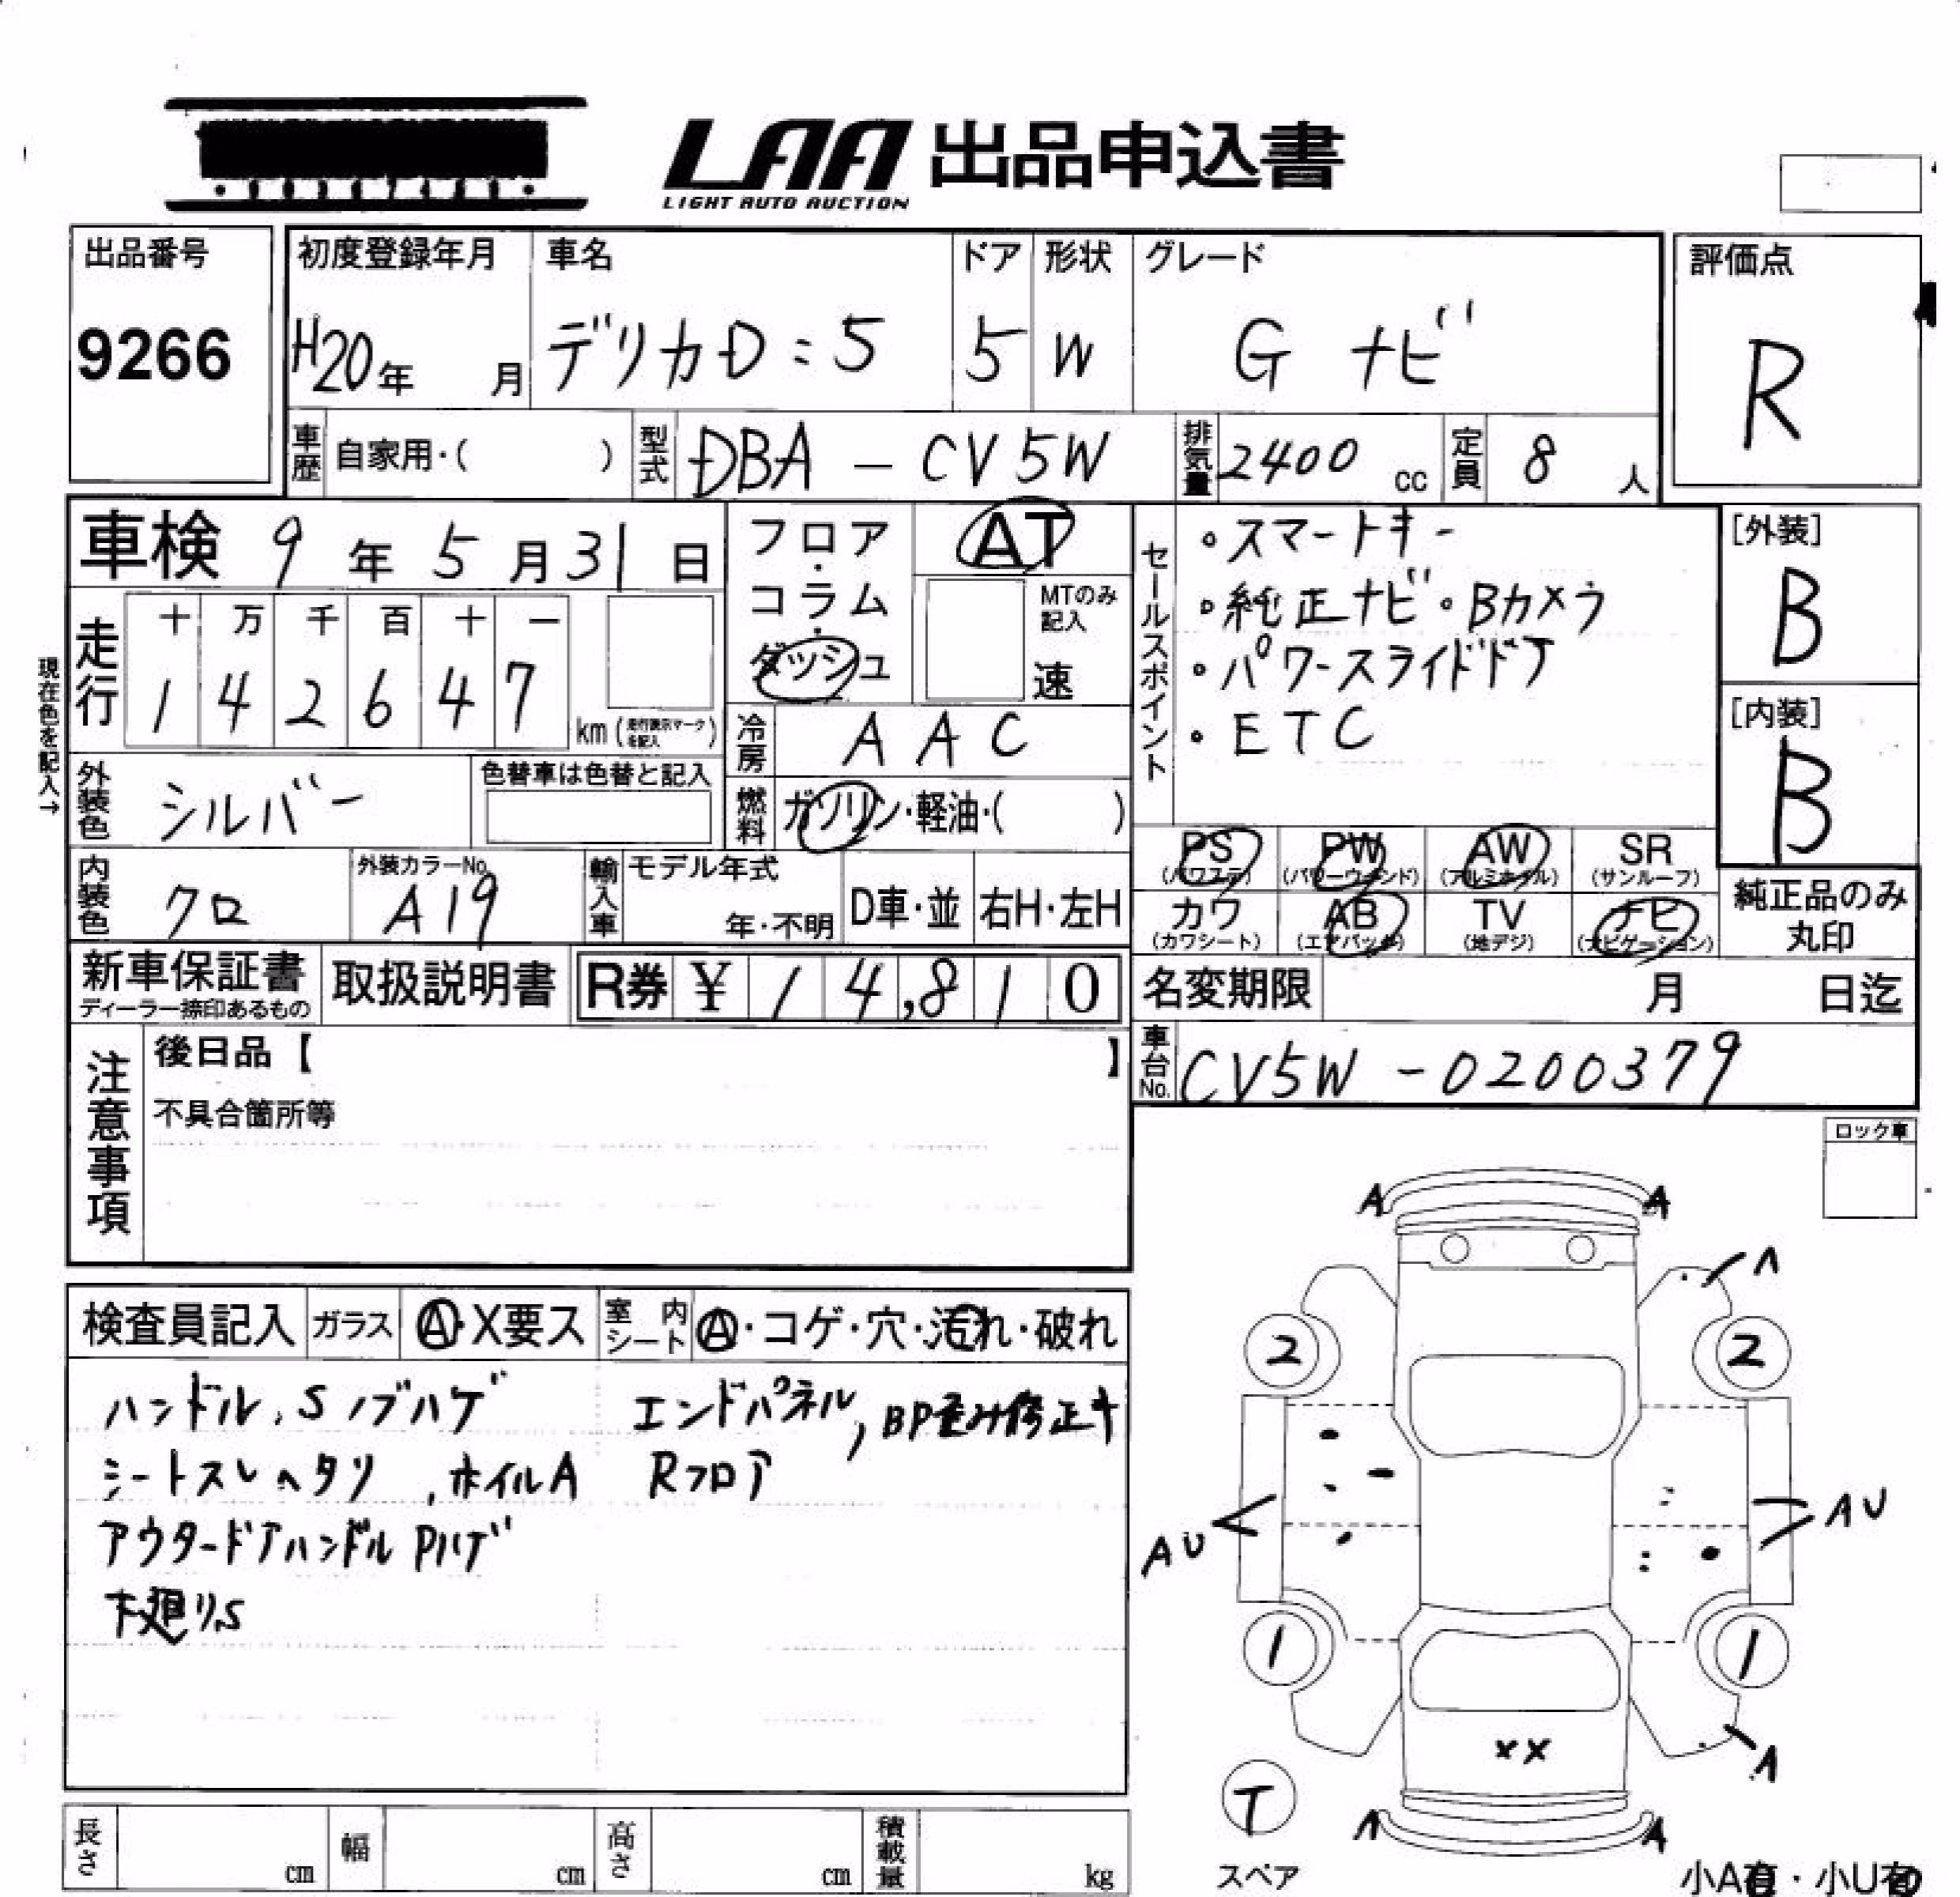 LAA 出品申込書
LIGHT AUTO AUCTION
出品番号
9266
初度登録年月
H20年 月
車名
デリカD:5
ドア
5
形状
W
グレード
G ナビ
評価点
R
車歴 自家用・( )
型式 DBA - CV5W
排気量 2400 cc
定員 8 人
車検 9年 5月 31日
フロア・コラム・ダッシュ
AT
MTのみ記入
速
セールスポイント
・スマートキー
・純正ナビ・Bカメラ
・パワースライドドア
・ETC
[外装]
B
[内装]
B
現在色を記入→
走行
十 万 千 百 十 一
1 4 2 6 4 7
km (走行表示マークを記入)
冷房 AAC
外装色 シルバー
色替車は色替と記入
燃料 ガソリン・軽油・( )
PS (パワステ)
PW (パワーウインド)
AW (アルミホイル)
SR (サンルーフ)
内装色 クロ
外装カラーNo. A19
輸入車
モデル年式
年・不明
D車・並
右H・左H
カワ (カワシート)
AB (エアバック)
TV (地デジ)
ナビ (ナビゲーション)
純正品のみ
丸印
新車保証書
ディーラー捺印あるもの
取扱説明書
R券 ¥ 14,810
名変期限 月 日迄
車台No. CV5W-0200379
注意事項
後日品【 】
不具合箇所等
ロック車
検査員記入
ガラス Ⓐ・X要ス
室内シート Ⓐ・コゲ・穴・汚れ・破れ
ハンドル、Sノブハゲ
シートスレヘタリ、ホイルA
アウタードアハンドルPハゲ
下廻りS
エンドパネル, BP歪み修正キ
Rフロア
A A
A
2 2
AU AU
1 1
XX
A
T
スペア
A A
小A有・小U有
長さ cm
幅 cm
高さ cm
積載量 kg